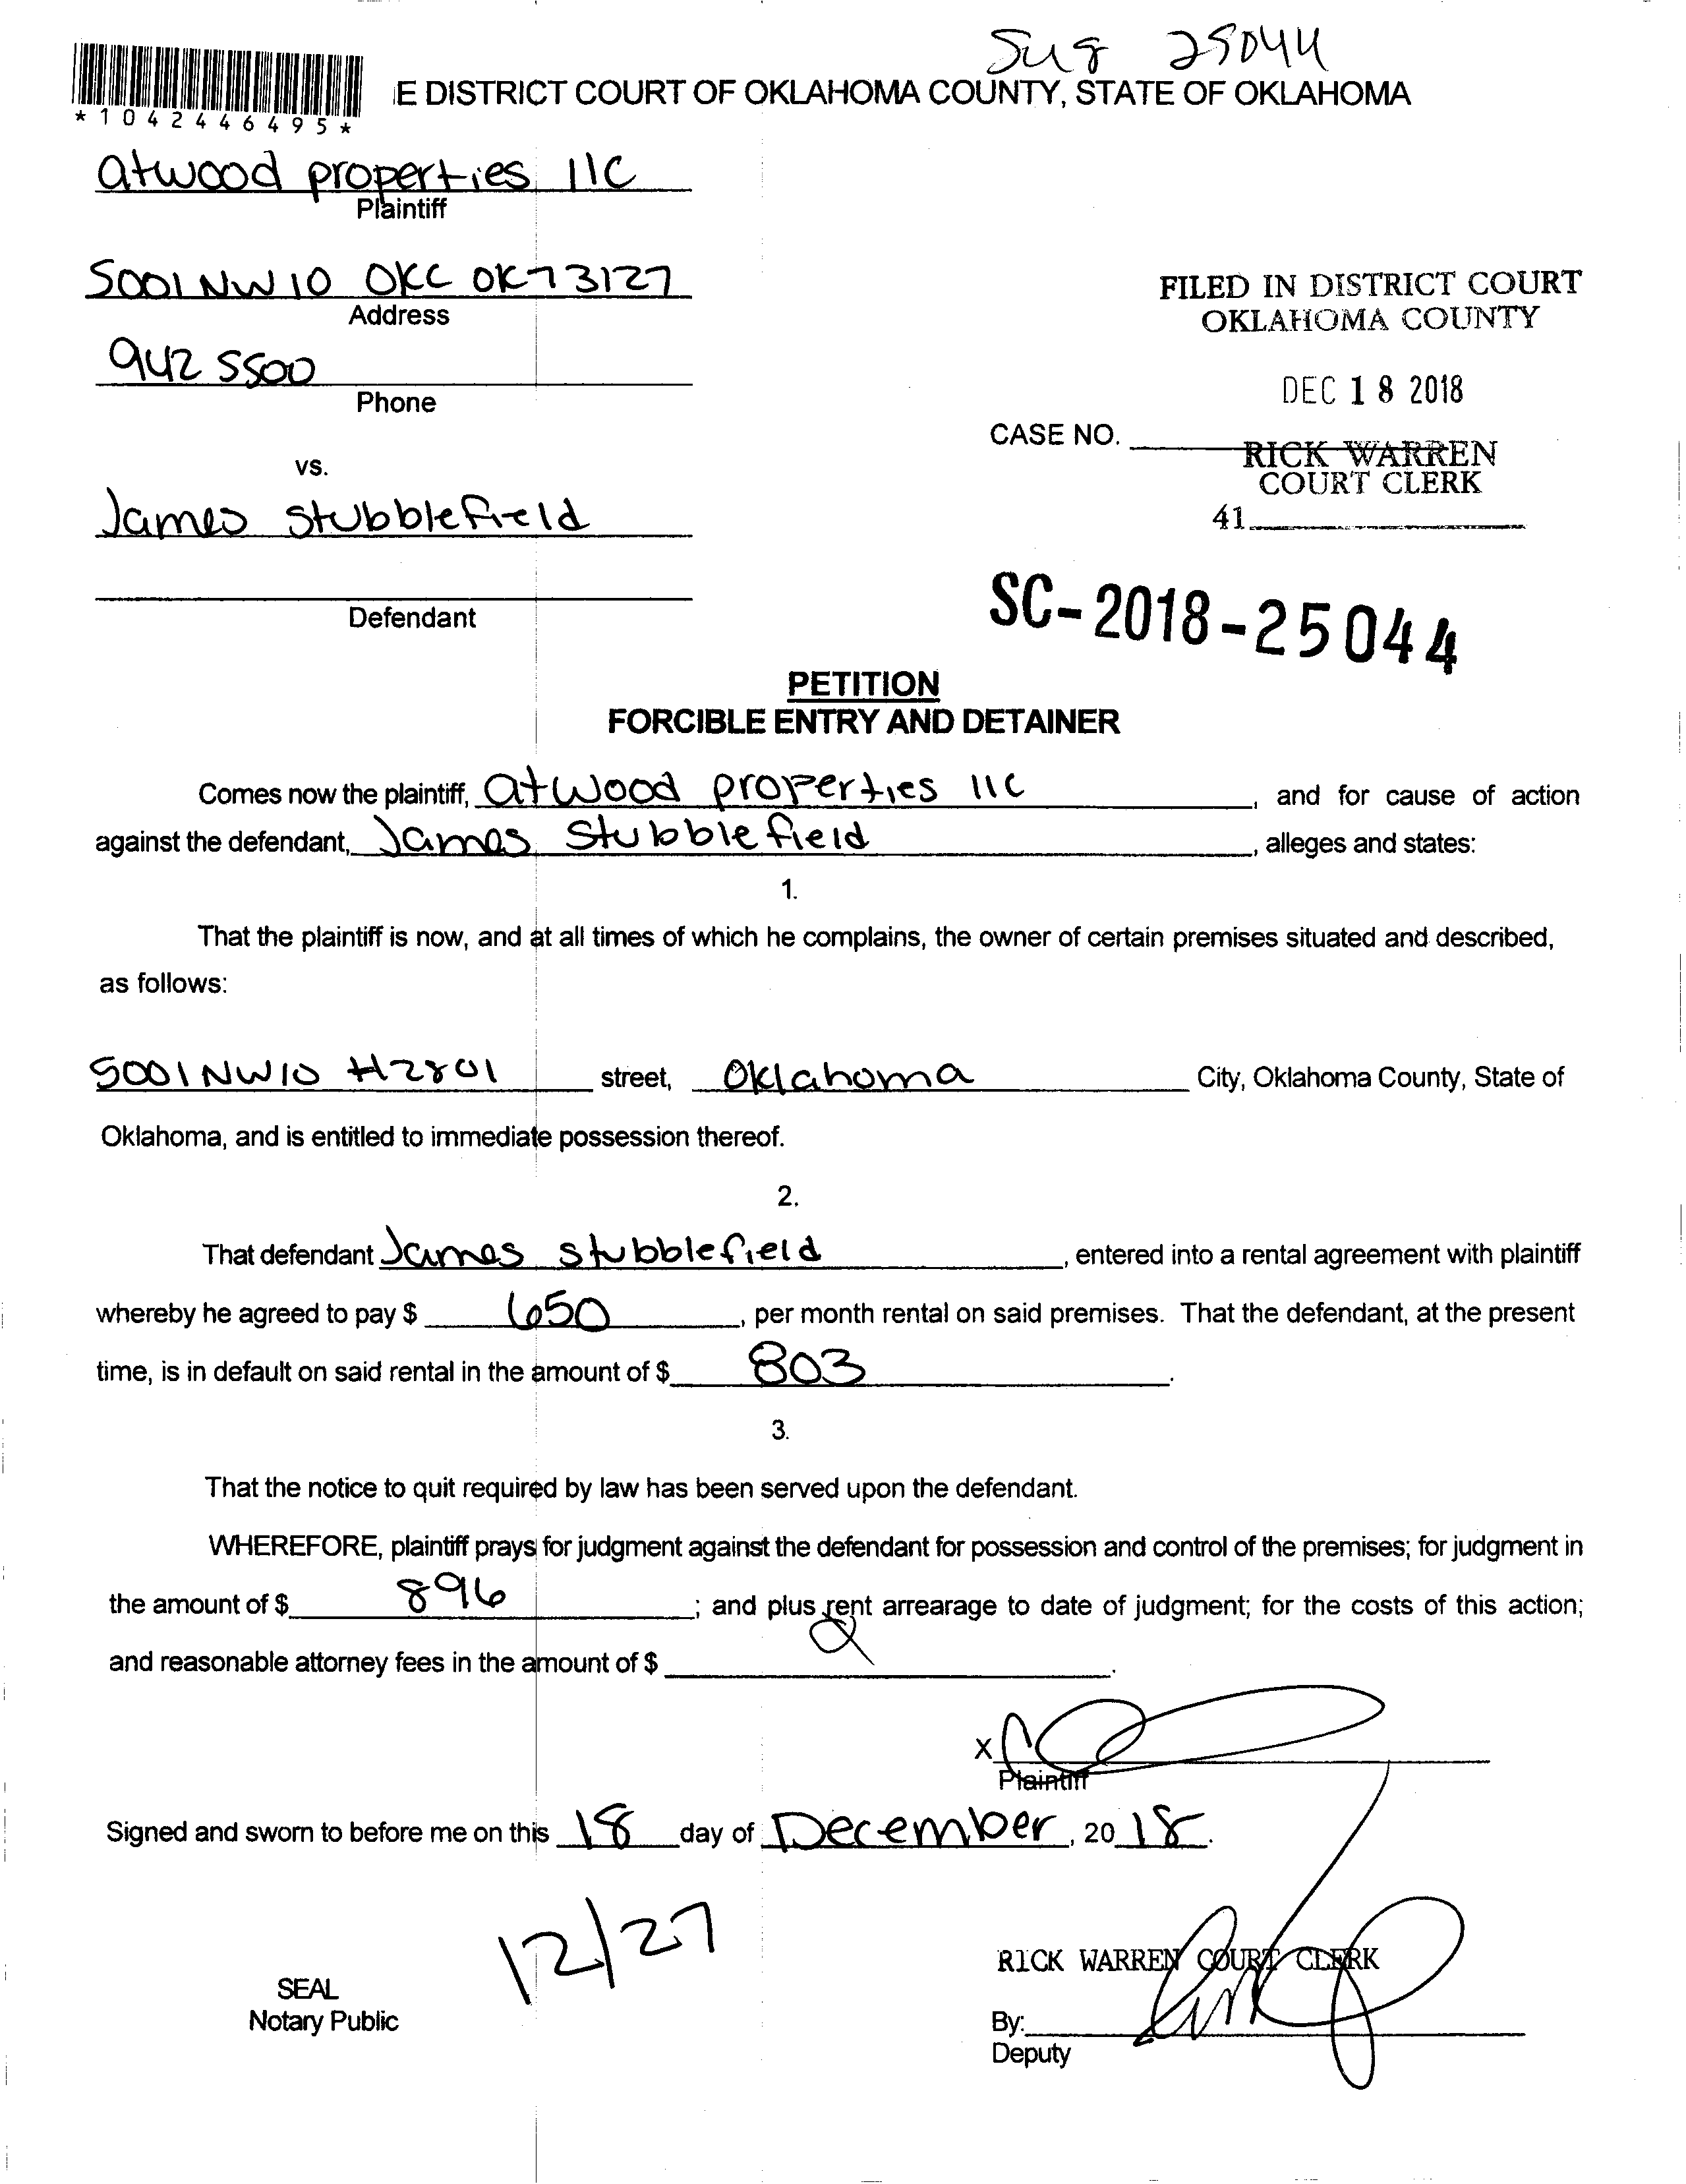 25044
E DISTRICT COURT OF OKLAHOMA COUNTY, STATE OF OKLAHOMA
*1042446495*
atwood properties llc
Plaintiff
5001 NW 10 OKC OK 73127
Address
FILED IN DISTRICT COURT
OKLAHOMA COUNTY
942 5500
Phone
DEC 18 2018
CASE NO.
RICK WARREN
COURT CLERK
41
vs.
James Stubblefield
Defendant
SC-2018-25044
PETITION
FORCIBLE ENTRY AND DETAINER
Comes now the plaintiff, atwood properties llc, and for cause of action
against the defendant, James Stubblefield, alleges and states:
1.
That the plaintiff is now, and at all times of which he complains, the owner of certain premises situated and described,
as follows:
5001 NW 10 #2801 street, Oklahoma City, Oklahoma County, State of
Oklahoma, and is entitled to immediate possession thereof.
2.
That defendant James Stubblefield, entered into a rental agreement with plaintiff
whereby he agreed to pay $ 650, per month rental on said premises. That the defendant, at the present
time, is in default on said rental in the amount of $ 803.
3.
That the notice to quit required by law has been served upon the defendant.
WHEREFORE, plaintiff prays for judgment against the defendant for possession and control of the premises; for judgment in
the amount of $ 896; and plus rent arrearage to date of judgment; for the costs of this action;
and reasonable attorney fees in the amount of $
X
Plaintiff
Signed and sworn to before me on this 18 day of December, 2018.
12/27
RICK WARREN COURT CLERK
SEAL
Notary Public
By:
Deputy